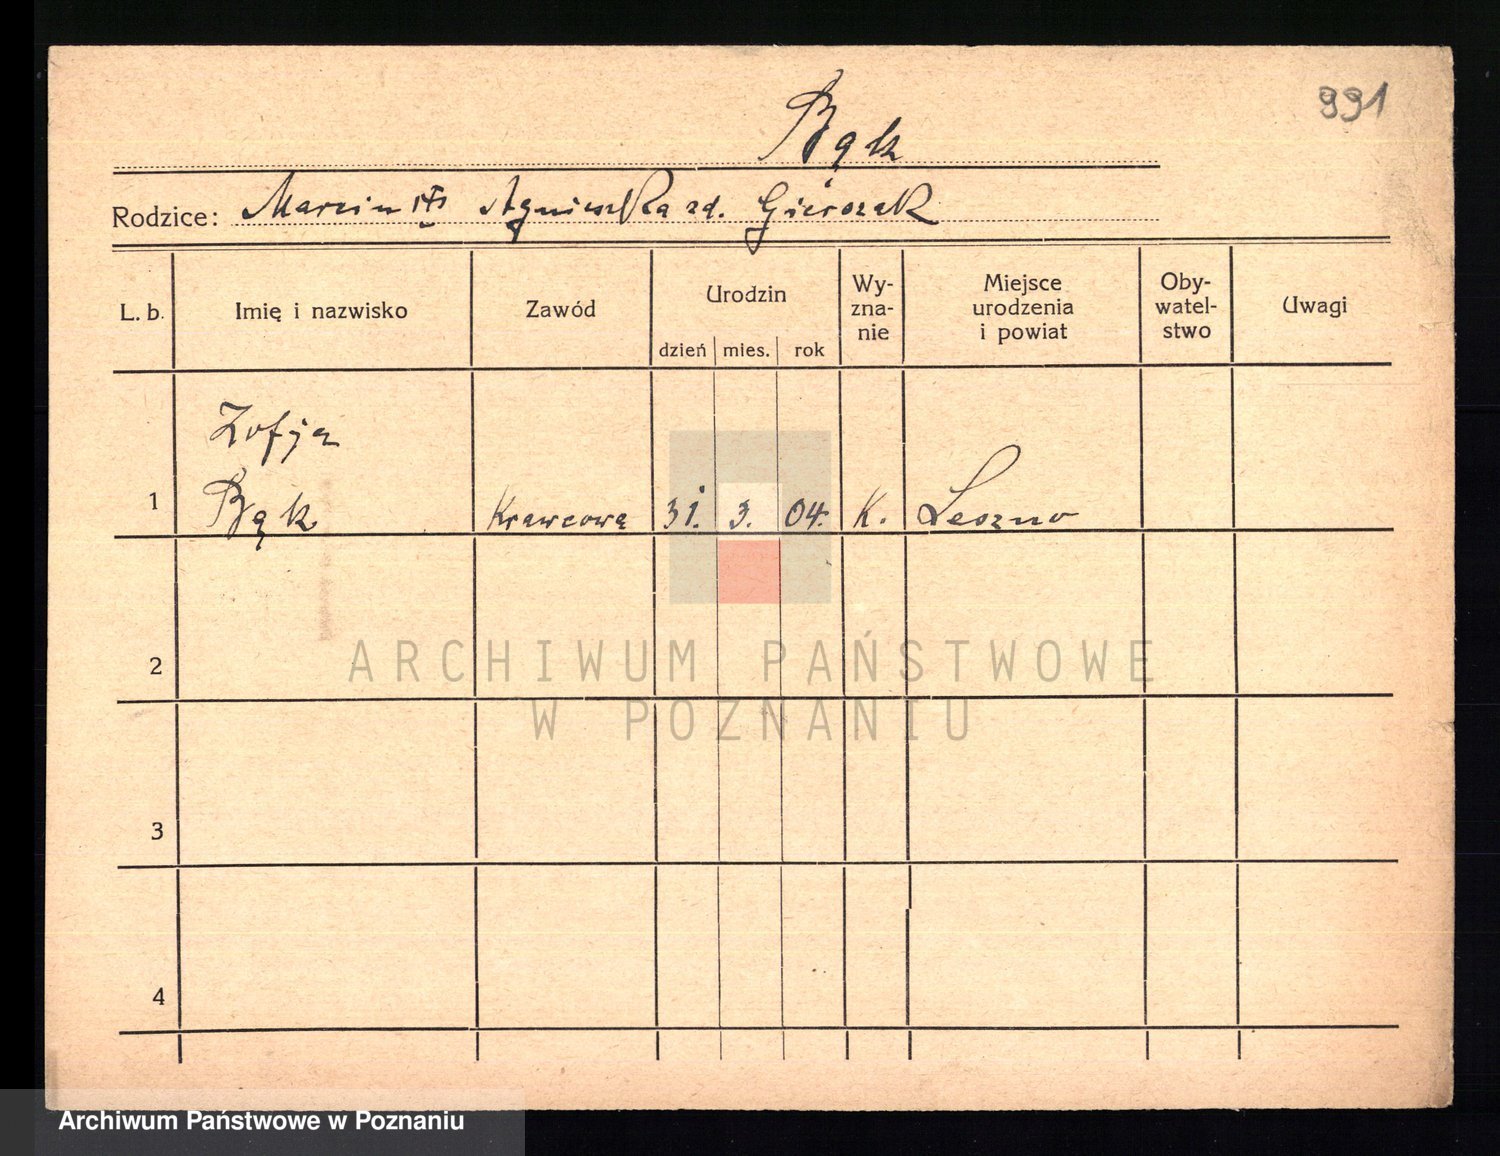 991
Bąk
Rodzice: Marcin i Agnieszka zd. Gierszak
L. b. Imię i nazwisko Zawód Urodzin Wyznanie Miejsce urodzenia i powiat Obywatelstwo Uwagi
dzień mies. rok
Zofja
1 Bąk Krawcowa 31. 3. 04. K. Leszno
2
ARCHIWUM PAŃSTWOWE
W POZNANIU
3
4
Archiwum Państwowe w Poznaniu